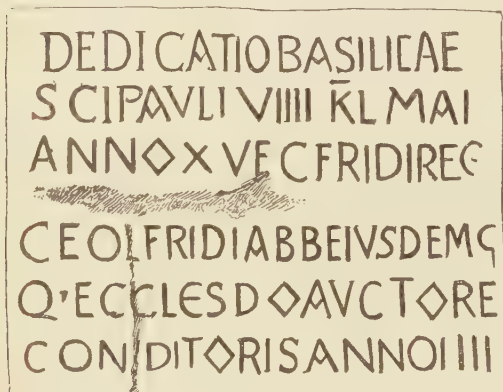 DEDICATIO BASILICAE
SCI PAVLI VIIII K̄L MAI
ANNO XV ECFRIDI REG
CEOLFRIDI ABB EIVSDEMQ
Q' ECCLES DO AVCTORE
CONDITORIS ANNO IIII